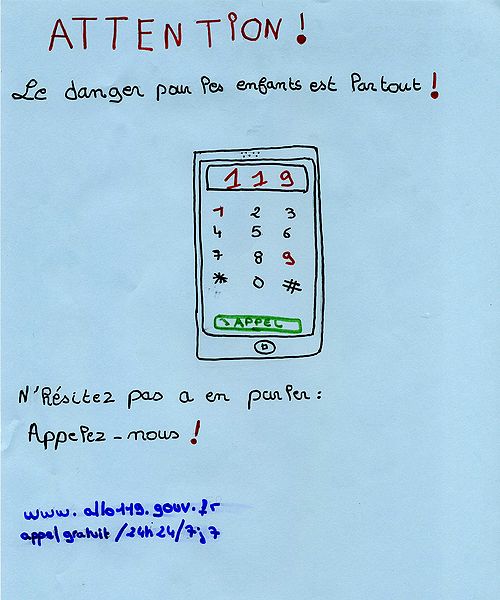 ATTENTION !
Le danger pour les enfants est Partout !
119
1 2 3
4 5 6
7 8 9
* 0 #
APPEL
N'Résitez pas a en parler :
Appelez-nous !
www.allo119.gouv.fr
appel gratuit /24h24/7j7